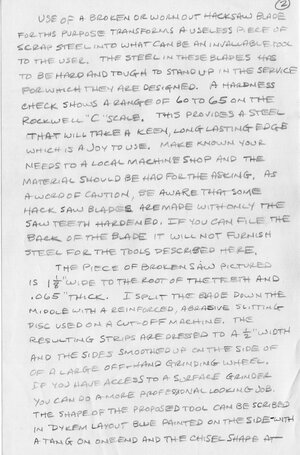 (2)
USE OF A BROKEN OR WORNOUT HACKSAW BLADE
FOR THIS PURPOSE TRANSFORMS A USELESS PIECE OF
SCRAP STEEL INTO WHAT CAN BE AN INVALUABLE TOOL
TO THE USER. THE STEEL IN THESE BLADES HAS
TO BE HARD AND TOUGH TO STAND UP IN THE SERVICE
FOR WHICH THEY ARE DESIGNED. A HARDNESS
CHECK SHOWS A RANGE OF 60 TO 65 ON THE
ROCKWELL "C" SCALE. THIS PROVIDES A STEEL
THAT WILL TAKE A KEEN, LONG LASTING EDGE
WHICH IS A JOY TO USE. MAKE KNOWN YOUR
NEEDS TO A LOCAL MACHINE SHOP AND THE
MATERIAL SHOULD BE HAD FOR THE ASKING. AS
A WORD OF CAUTION, BE AWARE THAT SOME
HACK SAW BLADES ARE MADE WITH ONLY THE
SAW TEETH HARDENED. IF YOU CAN FILE THE
BACK OF THE BLADE IT WILL NOT FURNISH
STEEL FOR THE TOOLS DESCRIBED HERE.
THE PIECE OF BROKEN SAW PICTURED
IS 1 1/8" WIDE TO THE ROOT OF THE TEETH AND
.065" THICK. I SPLIT THE BLADE DOWN THE
MIDDLE WITH A REINFORCED, ABRASIVE SLITTING
DISC USED ON A CUT-OFF MACHINE. THE
RESULTING STRIPS ARE DRESSED TO A 1/2" WIDTH
AND THE SIDES SMOOTHED UP ON THE SIDE OF
OF A LARGE OFF-HAND GRINDING WHEEL.
IF YOU HAVE ACCESS TO A SURFACE GRINDER
YOU CAN DO A MORE PROFESSIONAL LOOKING JOB.
THE SHAPE OF THE PROPOSED TOOL CAN BE SCRIBED
IN DYKEM LAYOUT BLUE PAINTED ON THE SIDE WITH
A TANG ON ONE END AND THE CHISEL SHAPE AT